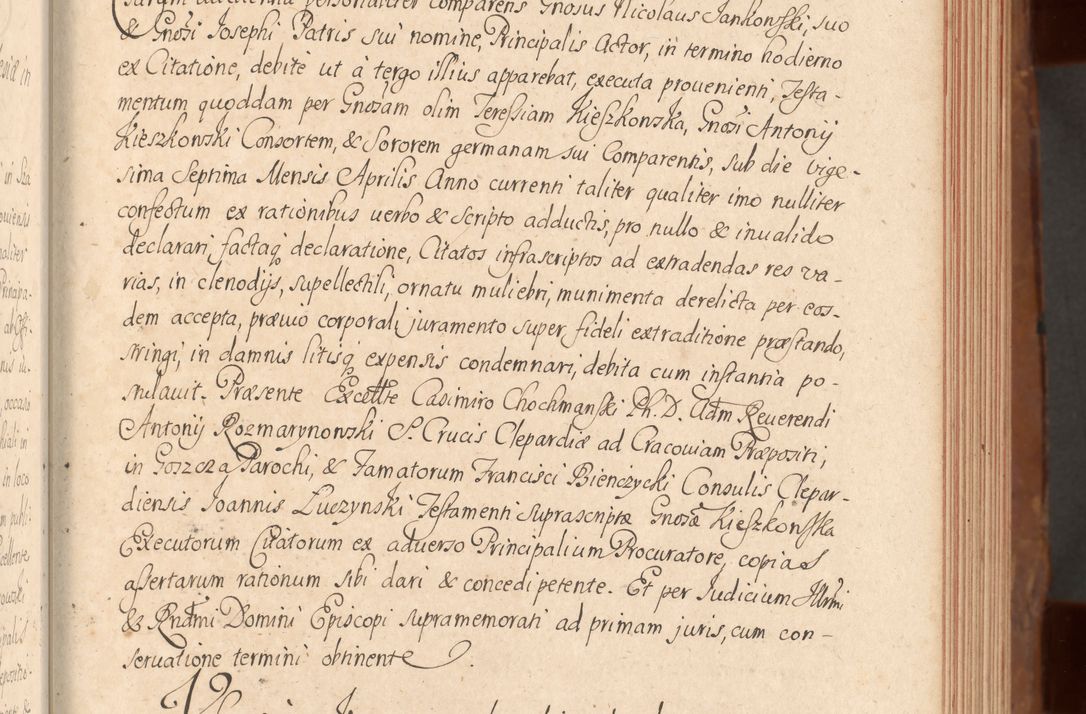 personaliter comparens Gnosus Nicolaus Jankonsski, suo
& Gnosi Josephi Patris sui nomine, Principalis Actor, in termino hodierno
ex Citatione, debite ut à tergo illius apparebat, executa provenienti, Testa-
mentum quoddam per Gnosam olim Teressiam Kieszkonska, Gnosi Antonij
Kieszkonski Consortem, & Sororem germanam sui Comparentis, sub die vige-
sima Septima Mensis Aprilis Anno currenti taliter qualiter imo nulliter
confectum ex rationibus uerbo & scripto adductis, pro nullo & inualido
declarari, factaq declaratione, Citatos infrascriptos ad extradendas res va-
rias, in clenodijs, supellectili, ornatu muliebri, munimenta derelicta per eos-
dem accepta, præuio corporali juramento super fideli extraditione præstando,
stringi, in damnis litisq expensis condemnari, debita cum instantia po-
stulauit. Præsente Excellte Casimiro Chochmanski Ph. D. Adm Reuerendi
Antonij Rozmarynonski S. Crucis Clepardiæ ad Cracouiam Præpositi,
in Goszcza Parochi, & Famatorum Francisci Bienczycki Consulis Clepar-
diensis Joannis Luczynski Testamenti suprascriptæ Gnosæ Kieszkonska
Executorum Citatorum ex aduerso Principalium Procuratore, copias
assertarum rationum sibi dari & concedi petente. Et per Judicium Illrmi
& Rndmi Domini Episcopi supramemorati ad primam juris, cum con-
seruatione termini obtinente.